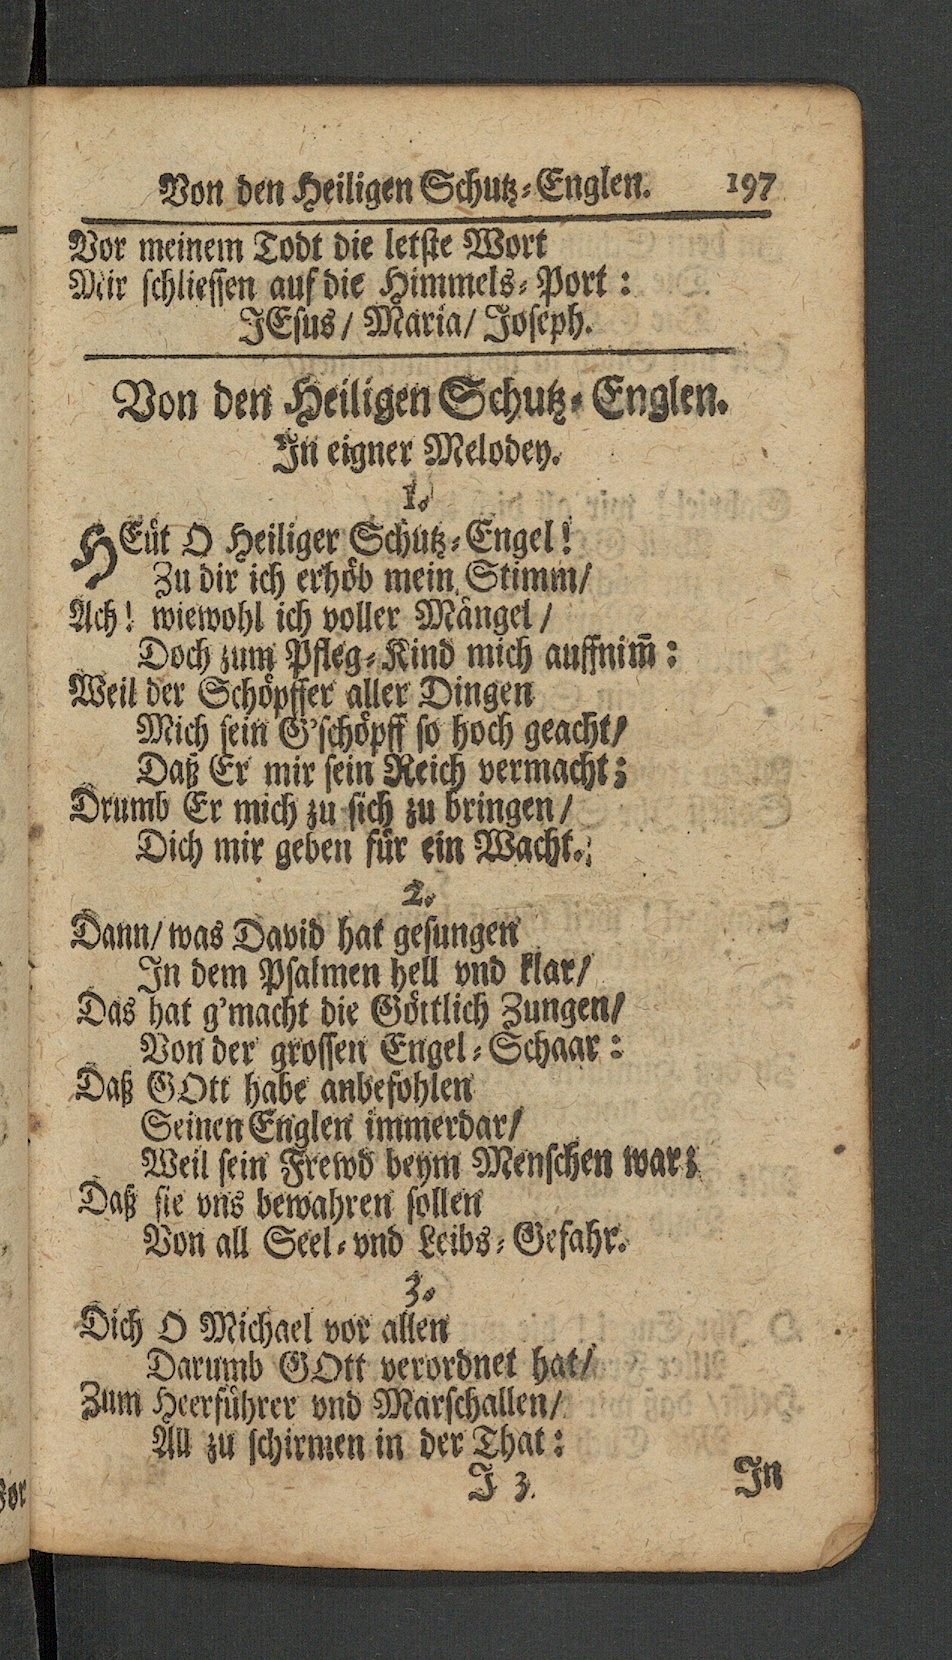 Von den Heiligen Schutz-Englen. 197
Vor meinem Todt die letste Wort
Mir schliessen auf die Himmels-Port:
JEsus/ Maria/ Joseph.
Von den Heiligen Schutz-Englen.
In eigner Melodey.
1.
HEüt O Heiliger Schutz-Engel!
Zu dir ich erhöb mein Stimm/
Ach! wiewohl ich voller Mängel/
Doch zum Pfleg-Kind mich auffnim̄:
Weil der Schöpffer aller Dingen
Mich sein G'schöpff so hoch geacht/
Daß Er mir sein Reich vermacht;
Drumb Er mich zu sich zu bringen/
Dich mir geben für ein Wacht.
2.
Dann/ was David hat gesungen
In dem Psalmen hell vnd klar/
Das hat g'macht die Göttlich Zungen/
Von der grossen Engel-Schaar:
Daß GOtt habe anbefohlen
Seinen Englen immerdar/
Weil sein Frewd beym Menschen war;
Daß sie vns bewahren sollen
Von all Seel-vnd Leibs-Gefahr.
3.
Dich O Michael vor allen
Darumb GOtt verordnet hat/
Zum Heerführer vnd Marschallen/
All zu schirmen in der That:
J 3. In